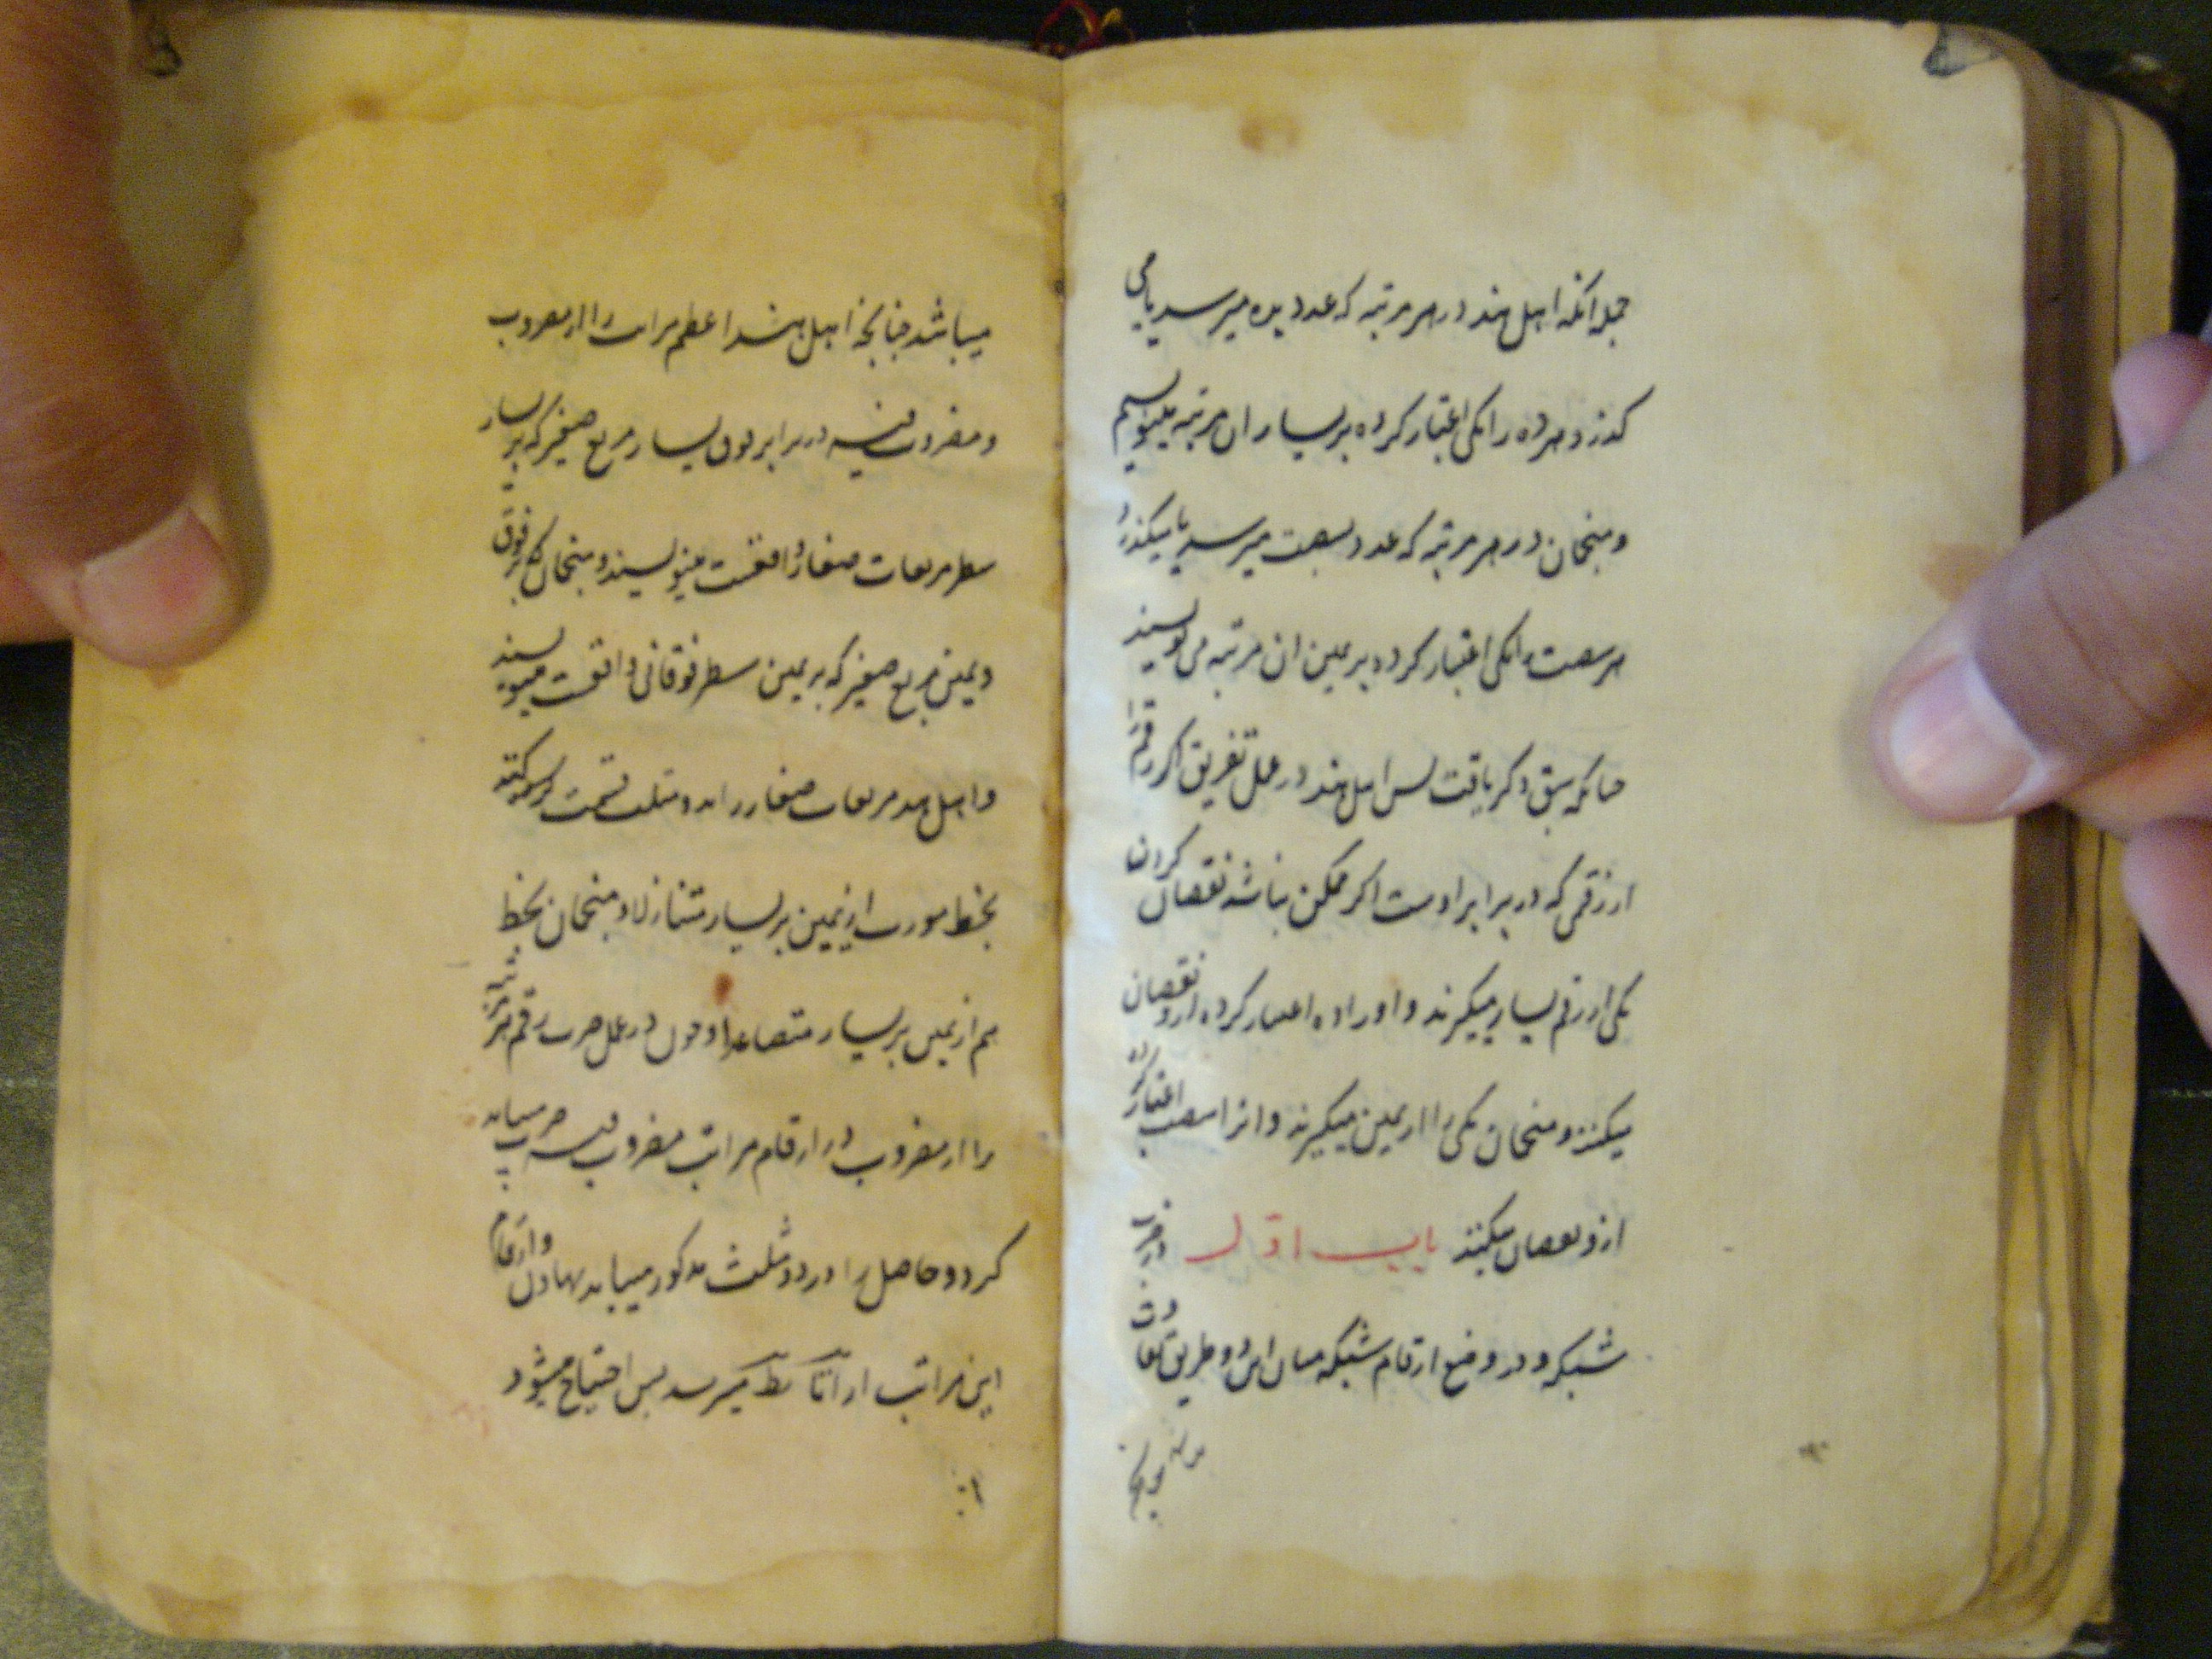 جمله انکه اهل هند در هر مرتبه که عدد بده میرسد یا می
کذرد هر ده را یکی اعتبار کرده بر یسار ان مرتبه مینویسیم
و منجمان در هر مرتبه که عدد بشصت میرسد یا میکذرد
هر شصت را یکی اعتبار کرده بر یمین ان مرتبه می نویسند
چنانکه سبق ذکر یافت پس اهل هند در عمل تفریق اکر رقم را
از رقمی که در برابر اوست اکر ممکن نباشد نقصان کردن
یکی از رقم یسار میکیرند و او را ده اعتبار کرده ازو نقصان
میکنند و منجمان یکی را از یمین میکیرند و انرا شصت اعتبار کرده
ازو نقصان میکنند باب اول در ضرب
شبکه و در وضع ارقام شبکه میان این دو طریق تفاوت
میباشد چنانچه اهل هند اعظم مراتب را از مضروب
و مضروب فیه در برابر فوق یسار مربع صغیر که بر یسار
سطر مربعات صغار واقعست مینویسند و منجمان بر فوق
و یمین مربع صغیر که بر یمین سطر فوقانی واقعست مینویسند
و اهل هند مربعات صغار را بدو مثلث قسمت
بخط مورب از یمین بر یسار متنازلا و منجمان بخط
هم از یمین بر یسار متصاعدا و چون در عمل ضرب رقم هر مرتبه
را از مضروب در ارقام مراتب مضروب فیه ضرب میباید
کرد و حاصل را در دو مثلث مذکور میباید نهاد و ارقام
این مراتب از ا تا نط میرسد پس احتیاج میشود